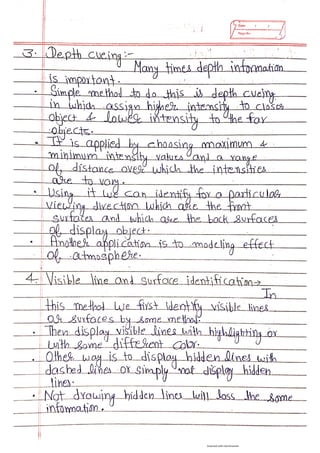 3. Depth cueing:-
Many times depth information
is important.
• Simple method to do this is depth cueing
in which assign higher intensity to closes
object & lower intensity to the far
objects.
• It is applied by choosing maximum &
minimum intensity values and a range
of distance over which the intensities
are to vary.
• Using it we can identify for a particular
viewing direction which are the front
surfaces and which are the back surfaces
of display object.
• Another application is to modeling effect
of atmosphere.
4. Visible line and surface identification→
In
this method we first identify visible lines
or surfaces by some method.
• Then display visible lines with highlighting or
with some different color.
• Other way is to display hidden lines with
dashed lines or simply not display hidden
lines.
• Not drawing hidden lines will loss the some
information.